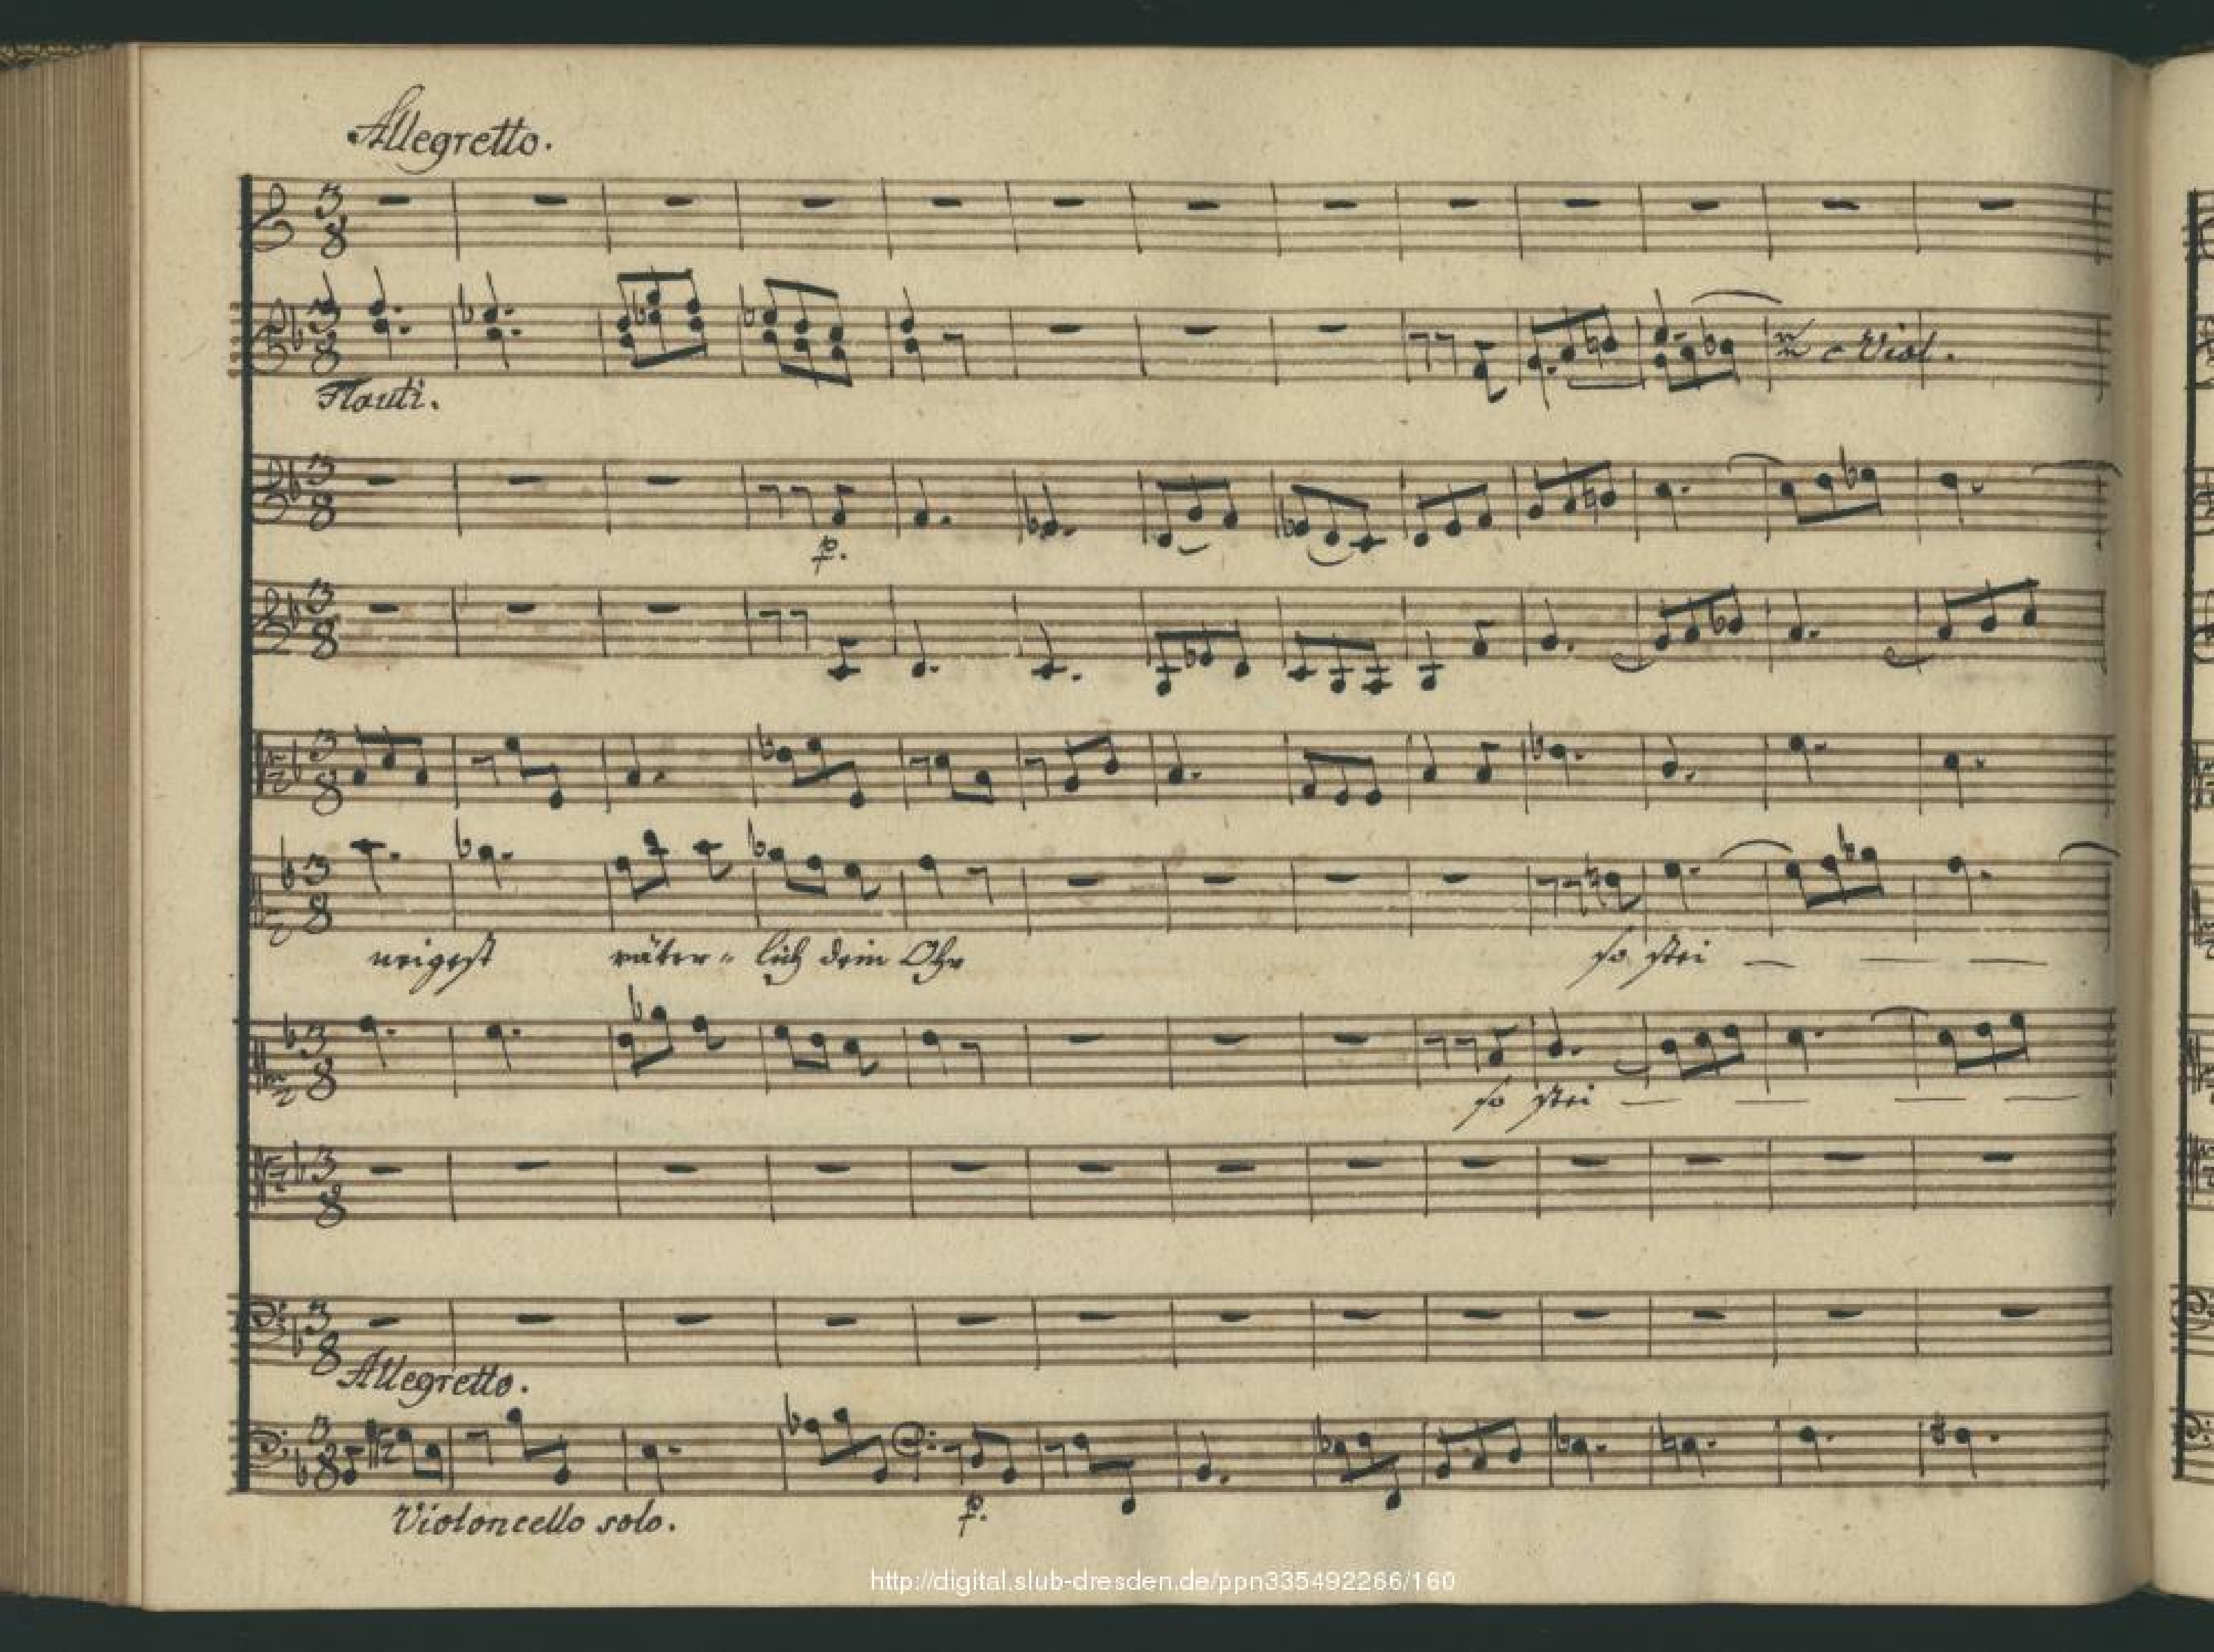 Allegretto.
3
8
3
8
c Viol.
Flauti.
3
8
p.
3
8
3
8
3
8
neigest väter- lich dein Ohr so stei — — —
3
8
so stei — — — —
3
8
3
8
Allegretto.
3
8
Violoncello solo. p.
http://digital.slub-dresden.de/ppn335492266/160